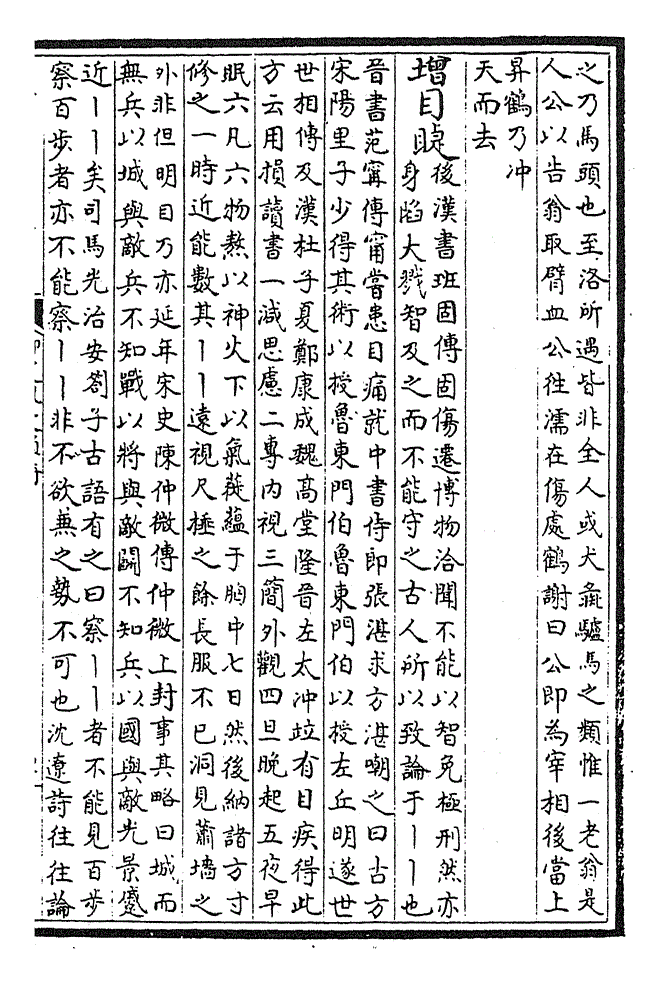 之乃馬頭也至洛所遇皆非全人或犬彘驢馬之類惟一老翁是
人公以告翁取臂血公往濡在傷處鶴謝曰公即為宰相後當上
昇鶴乃冲
天而去
增目睫
後漢書班固傳固傷遷博物洽聞不能以智免極刑然亦
身陷大戮智及之而不能守之古人所以致論于丨丨也
晉書范甯傳甯嘗患目痛就中書侍郎張湛求方湛嘲之曰古方
宋陽里子少得其術以授魯東門伯魯東門伯以授左丘明遂世
世相傳及漢杜子夏鄭康成魏高堂隆晉左太冲竝有目疾得此
方云用損讀書一減思慮二專內視三簡外觀四旦晚起五夜早
眠六凡六物熬以神火下以氣蓰蘊于胸中七日然後納諸方寸
修之一時近能數其丨丨遠視尺捶之餘長服不已洞見蕭墻之
外非但明目乃亦延年宋史陳仲微傳仲微上封事其略曰城而
無兵以城與敵兵不知戰以將與敵鬭不知兵以國與敵光景蹙
近丨丨矣司馬光治安劄子古語有之曰察丨丨者不能見百步
察百步者亦不能察丨丨非不欲兼之勢不可也沈遼詩往往論